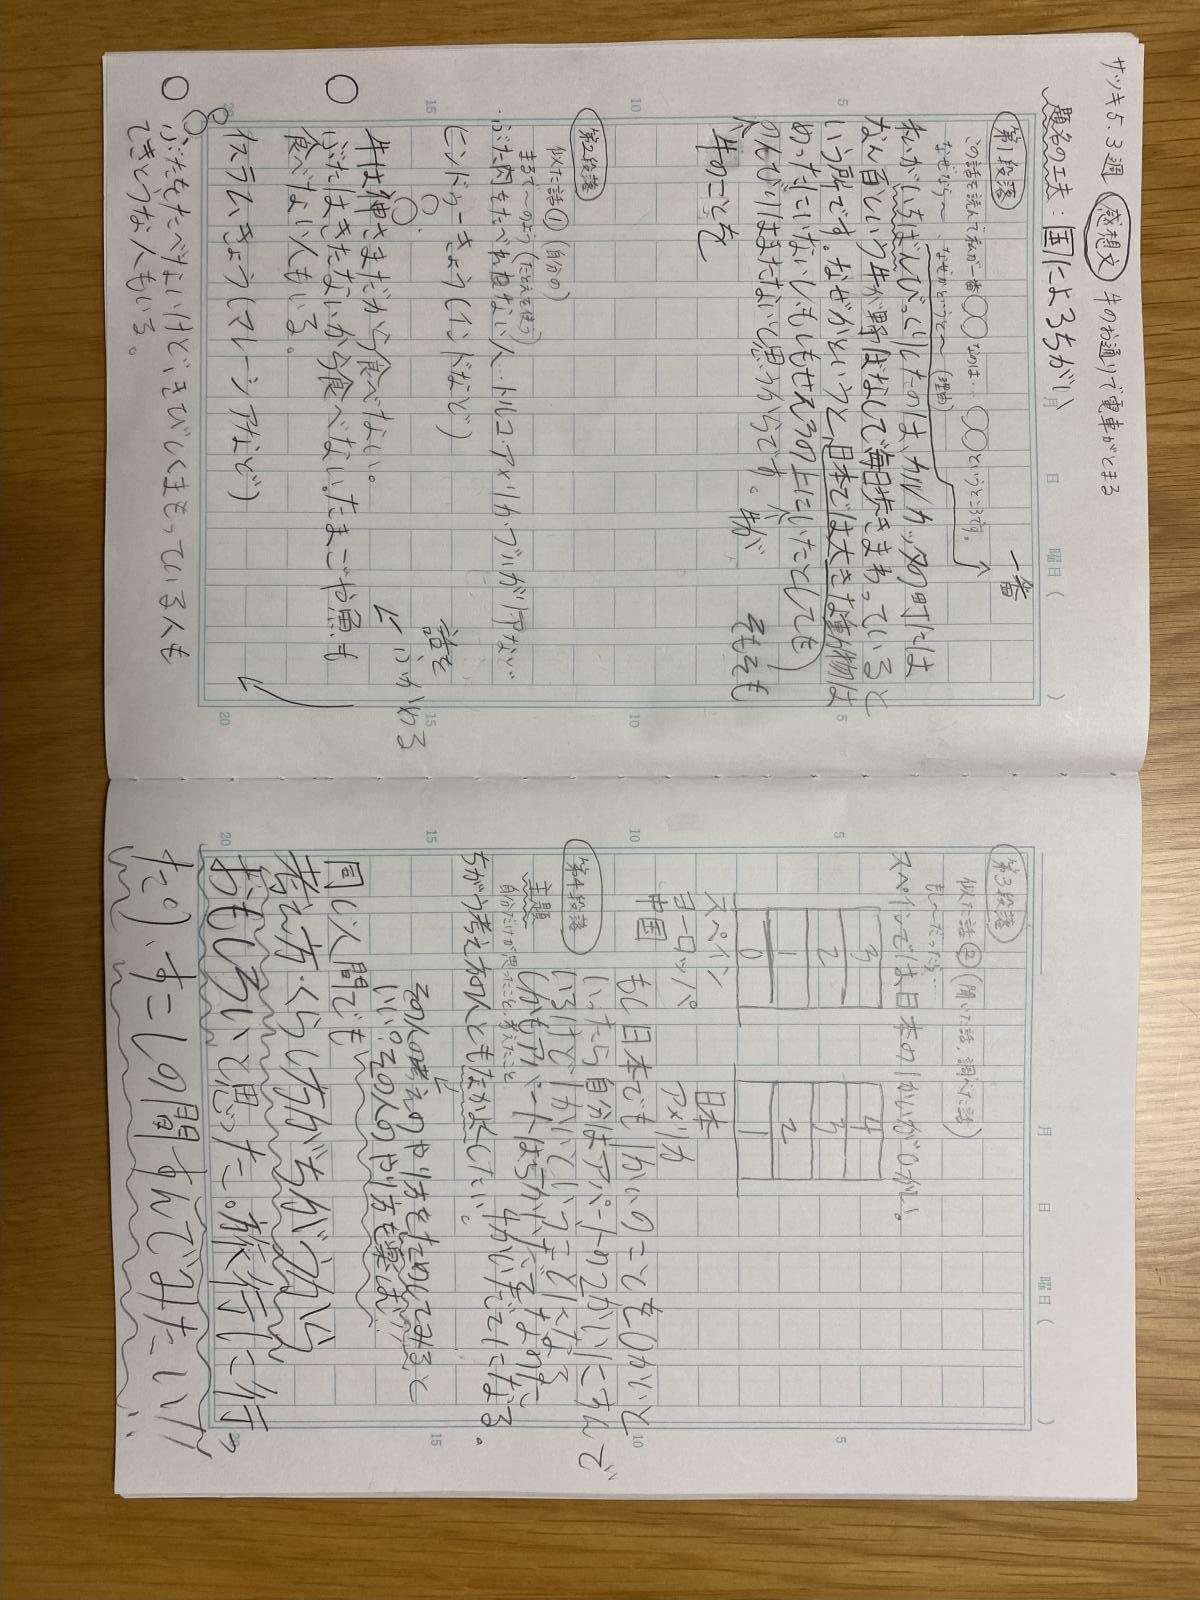 サツキ5.3週 感想文 牛のお通りで電車がとまる
題名の工夫:国によるちがい
月 日 曜日( )
5 10 15 20
第1段落
この話を読んで私が一番〇〇なのは…〇〇というところです。
一番
なぜなら〜、なぜかというと〜(理由)
私がいちばんびっくりしたのは、カルカッタの町には
なん百という牛が野ばなしで毎日歩きまわっていると
いう所です。なぜかというと、日本では大きな動物は
めったにいないしもしもせんろの上にいたとしても
のんびりはまたないと思うからです。牛が
そもそも
牛のことを
第2段落
似た話①(自分の)
まるで〜のよう(たとえを使う)
ぶた肉をたべれ ない人…トルコ・アメリカ・ブルガリア など
ヒンドゥーきょう(インドなど)
話を
ぶんかわる
牛は神さまだから食べない。
ぶたはきたないから食べない。たまごや魚も
食べない人もいる。
イスラムきょう(マレーシアなど)
ぶたをたべないけどきびしくまもっている人も
てきとうな人もいる。
月 日 曜日( )
5 10 15 20
第3段落
似た話②(聞いた話、調べた話)
もし〜だったら…
スペインでは日本の1かいが0かい。
3 2 1 0
4 3 2 1
スペイン
ヨーロッパ
中国
日本
アメリカ
もし日本でも1かいのことを0かいと
いったら自分はアパートの2かいにすんで
いるけど1かいということになる
しかもアパートは5かいだてなのに
4かいだてになる。
第4段落
主題
自分だけが思ったこと、考えたこと
ちがう考え方の人ともなかよくしたい。
その人の考えのやり方をためしてみると
いい。その人のやり方も楽しい
同じ人間でも
考え方・くらし方がちがうから
おもしろいと思った。旅行に行っ
たり、すこしの間すんでみたい!